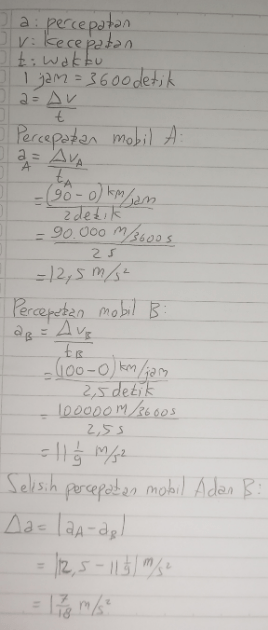 a: percepatan
v: kecepatan
t: waktu
1 jam = 3600 detik
a = Δv/t
Percepatan mobil A:
a_A = Δv_A/t_A
= (90-0) km/jam / 2 detik
= 90.000 m/3600 s / 2 s
= 12,5 m/s²
Percepatan mobil B:
a_B = Δv_B/t_B
= (100-0) km/jam / 2,5 detik
= 100000 m/3600 s / 2,5 s
= 11 1/9 m/s²
Selisih percepatan mobil A dan B:
Δa = |a_A - a_B|
= |12,5 - 11 1/9| m/s²
= 1 7/18 m/s²